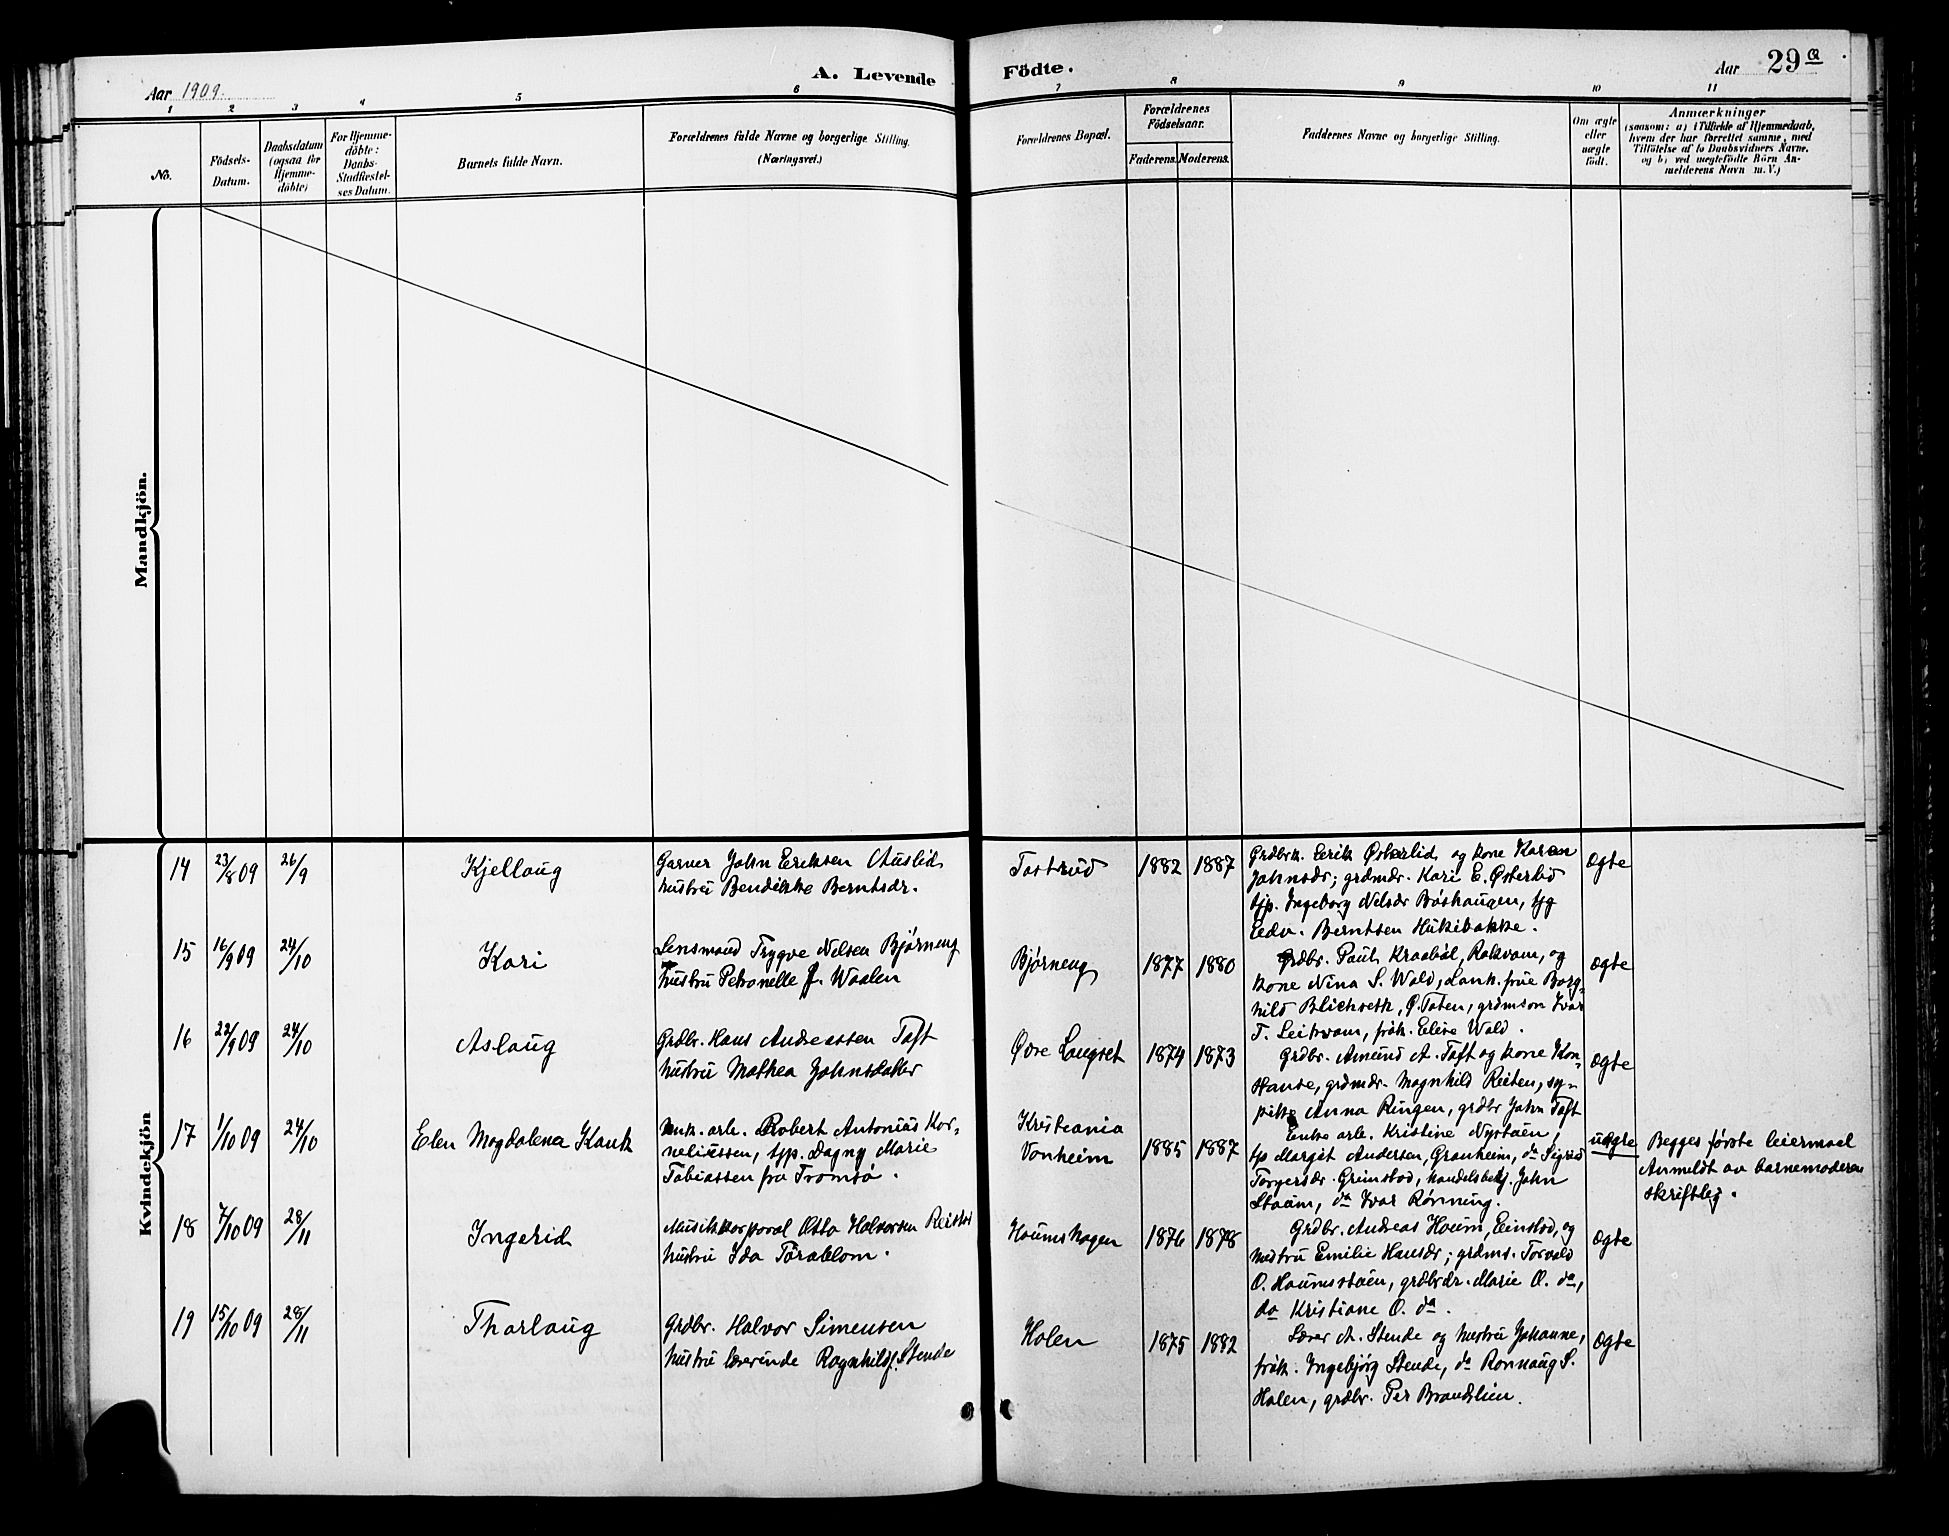 Aar 1909.
A. Levende
Födte.
Aar
29a
1 2 3 4 5 6 7 8 9 10 11
No.
Födsels-
Datum.
Daabsdatum
(ogsaa for
Hjemme-
döbte)
For Hjemme-
döbte:
Daabs-
Stadfæstel-
ses Datum.
Barnets fulde Navn.
Forældrenes fulde Navne og borgerlige Stilling.
(Næringsvei.)
Forældrenes Bopæl.
Forældrenes
Födselsaar.
Faderens.
Moderens.
Faddernes Navne og borgerlige Stilling.
Om ægte
eller
uægte
födt.
Anmærkninger
(saasom: a) i Tilfælde af Hjemmedaab,
hvem der har forrettet samme, med
Tilföielse af to Daabsvidners Navne,
og b) ved uægtefödte Börn An-
melderens Navn m. V.)
Mandkjön.
Kvindekjön
14
23/8 09
26/9
Kjellaug
Garver John Eriksen Auslid
hustru Bendikke Berntsdr.
Tostrud
1882
1887
Grdbrk. Eerik Østerlid og kone Karen
Johnsdr; grdmdr. Kari E. Østerlid
tjp. Ingeborg Nelsdr Bøshaugen, tjg
Edv. Berntsen Hukibakke.
Ægte
15
16/9 09
24/10
Kari
Lensmand Trygve Nelsen Bjørneng
hustru Petronelle J. Waalen
Bjørneng
1877
1880
Grdbr. Paul Kraabøl, Rokvam, og
kone Nina S. Wold, Lank. frue Borg-
hild Blichseth, Ø. Toten, grdmson Ivar
T. Leikvam, frøk. Elise Wold.
Ægte
16
22/9 09
24/10
Aslaug
Grdbr. Hans Andreassen Toft
hustru Mathea Johnsdatter
Øvre Langset
1874
1873
Grdbr. Amund A. Toft og kone Kon-
stanse, grdmdr. Magnhild Reiten, sy-
pike Anna Ringen, grdbr John Toft
Ægte
17
1/10 09
24/10
Elen Magdalena Kauk
Unk. arb. Robert Antonius Kor-
neliussen, tjp. Dagny Marie
Tobiassen fra Tromsø.
Kristiania
Vonheim
1885
1887
Enke arb. Kristine Nystuen,
tjp Margit Andersen, Granheim, do Sigrid
Torgersdr. Grimstad, handelsbetj. John
Staum, do Ivar Rønning.
uægte
Begges første leiermaal
Anmeldt av barnemoderen
skriftleg.
18
7/10 09
28/11
Ingerid
Musikkorporal Otto Halvorsen Reistad
hustru Ida Törnblom.
Haumshagen
1876
1878
Grdbr. Andreas Houm, Einstad, og
hustru Emilie Hansdr; grdms. Torvald
O. Haumsstuen, grdbrdr. Marie O. do,
do Kristiane O. do.
Ægte
19
15/10 09
28/11
Thorlaug
Grdbr. Halvor Simensen
hustru lærerinde Ragnhild J. Stende
Holen
1875
1882
Lærer A. Stende og hustru Johanne,
frøk. Ingebjørg Stende, do Ronnaug S.
Holen, grdbr. Per Brandslien.
Ægte